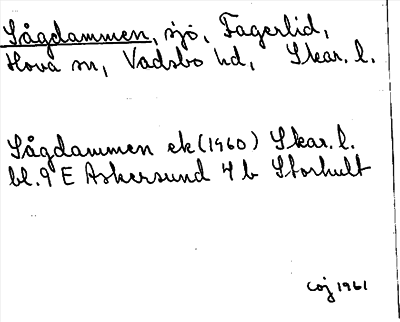 Sågdammen, sjö, Fagerlid,
Hova sn, Vadsbo hd, Skar. l.
Sågdammen ek (1960) Skar. l.
bl. 9 E Askersund 4 b Storhult
COJ 1961